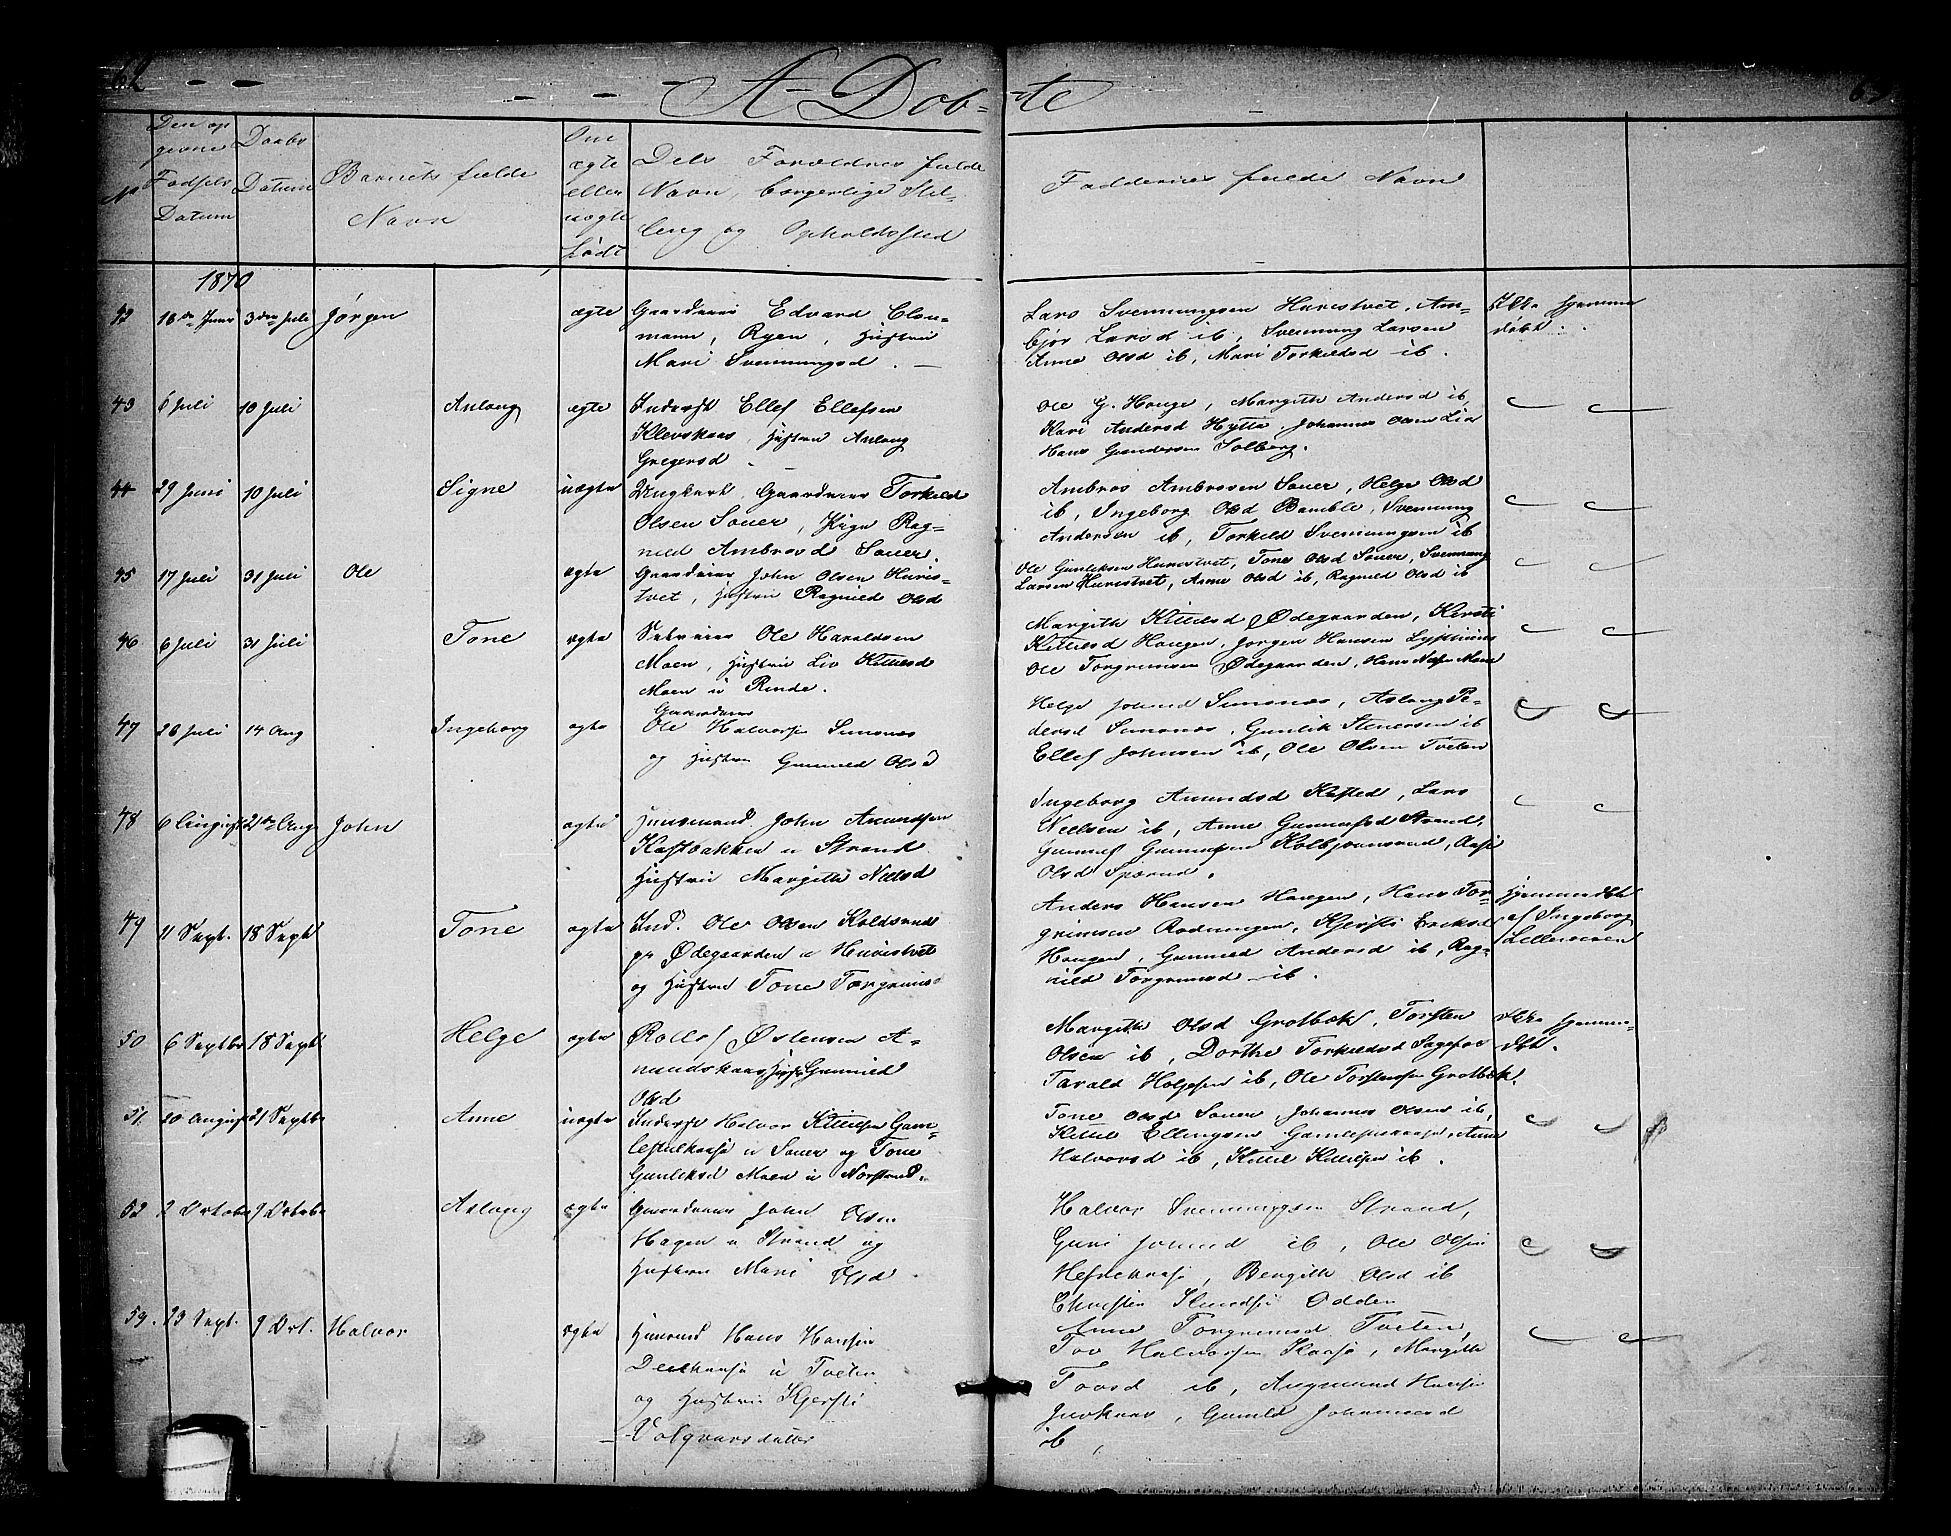 62 63
A - Døb - te
No
Den op
givne
Fødsels
Datum
Daabs
Datum
Barnets fulde
Navn
Om
ægte
eller
uægte
født
Dets Forældres fulde
Navn, borgerlige Stil-
ling og Opholdssted
Faddernes fulde Navn
1870
42 16de Juni 3die Juli Jørgen ægte Gaardeier Edvard Clau-
mann, Ryen, Hustru
Mari Svenningsd. —
Lars Svenningsen Huvestvet, Am-
bjør Larsd ib, Svennung Larsen
Anne Olsd ib, Mari Torkildsd ib.
Ikke hjemme
døbt.
43 6 Juli 10 Juli Aslaug ægte Inderst Ellef Ellefsen
Klevskaas, Hustru Aslaug
Gregersd —
Ole G. Hauge, Margith Andersd ib,
Kari Andersd Hytta, Johannes Olsen Lia
Hans Gundersen Solberg.
44 29 Juni 10 Juli Signe uægte Ungkarl, Gaardeier Torkild
Olsen Sauer, Pige Rag-
nild Ambrosd Sauer.
Ambros Ambrosen Sauer, Helge Olsd
ib, Ingeborg Olsd Bamble, Svennung
Andersen ib, Torkild Svenningsen ib
45 17 Juli 31 Juli Ole ægte Gaardeier John Olsen Huvis-
tvet, Hustru Ragnild Olsd
Ole Gunliksen Huvestvet, Tone Olsd Sauer, Svennung
Larsen Huvestvet, Anne Olsd ib, Ragnild Olsd ib
46 6 Juli 31 Juli Tone ægte Selveier Ole Haraldsen
Moen, Hustru Liv Kittilsd
Moen u Rinde.
Margith Kittilsd Ødegaarden, Kirsti
Kittilsd Haugen, Jørgen Hansen
Ole Torgrimsen Ødegaarden, Hans Moen
47 26 Juli 14 Aug Ingeborg ægte Gaardeier
Ole Halvorsen Sunsnæs
og Hustru Gunnild Olsd
Helge Johnsd Sunsnæs, Aslaug Pe-
dersd Sunsnæs, Gunlik Stenersen ib
Ellef Johnsen ib, Ole Olsen Tveten
48 6 August 21de Aug John ægte Huusmand John Amundsen
Kastbakken u Strand
Hustru Margith Nielsd
Ingeborg Amundsd Kasted, Lars
Nielsen ib, Anne Gunnarsd Strand,
Gunnuf Gunnufsen Kolbjørnsrud, Aase
Olsd
49 11 Sept. 18 Sept Tone ægte Ind. Ole Olsen Koldsrud
pr Ødegaarden u Huvistvet
og Hustru Tone Torgrims-
Anders Hansen Haugen, Hans Tor-
grimsen Rodningen, Kjersti Eriksd
Haugen, Gunnild Andersd ib, Rag-
nild Torgrimsd ib.
Hjemmedøbt
af Ingeborg
Lillemoen
50 6 Septbr 18 Sept Helge ægte Rollef Østensen A-
mundskaas Hustr Gunnild
Olsd
Margith Olsd Grotbæk, Torsten
Olsen ib, Dorthe Torkildsd Sagefos
Tarald Helgesen ib, Ole Torstensen Grotbæk.
Ikke hjemme-
døbt.
51. 20 August 21 Septbr Anne uægte Inderst Halvor Kittilsen Gam-
u Sauer og Tone
Gunliksd Moen u Norstrud.
Tone Olsd Sauer, Johannes Olsen ib,
Kittil Ellingsen Anne
Halvorsd ib, Kittil Kittilsen ib.
52 2 Octobr 9 Octobr Aslaug ægte Gaardeier John Olsen
Hagen u Strand og
Hustru Mari Olsd.
Halvor Svenningsen Strand,
Guri Johnsd ib, Ole Olsen
Bergith Olsd ib
Christen Odden
53. 23 Sept. 9 Oct. Halvor ægte Huusmd Hans Hansen
u Tveten
og Hustru Kjersti
Anne Torgrimsd Tveten,
Tov Halvorsen Kaasa, Margith
Tovsd ib, Hansen
Gunild Johannesd
ib,